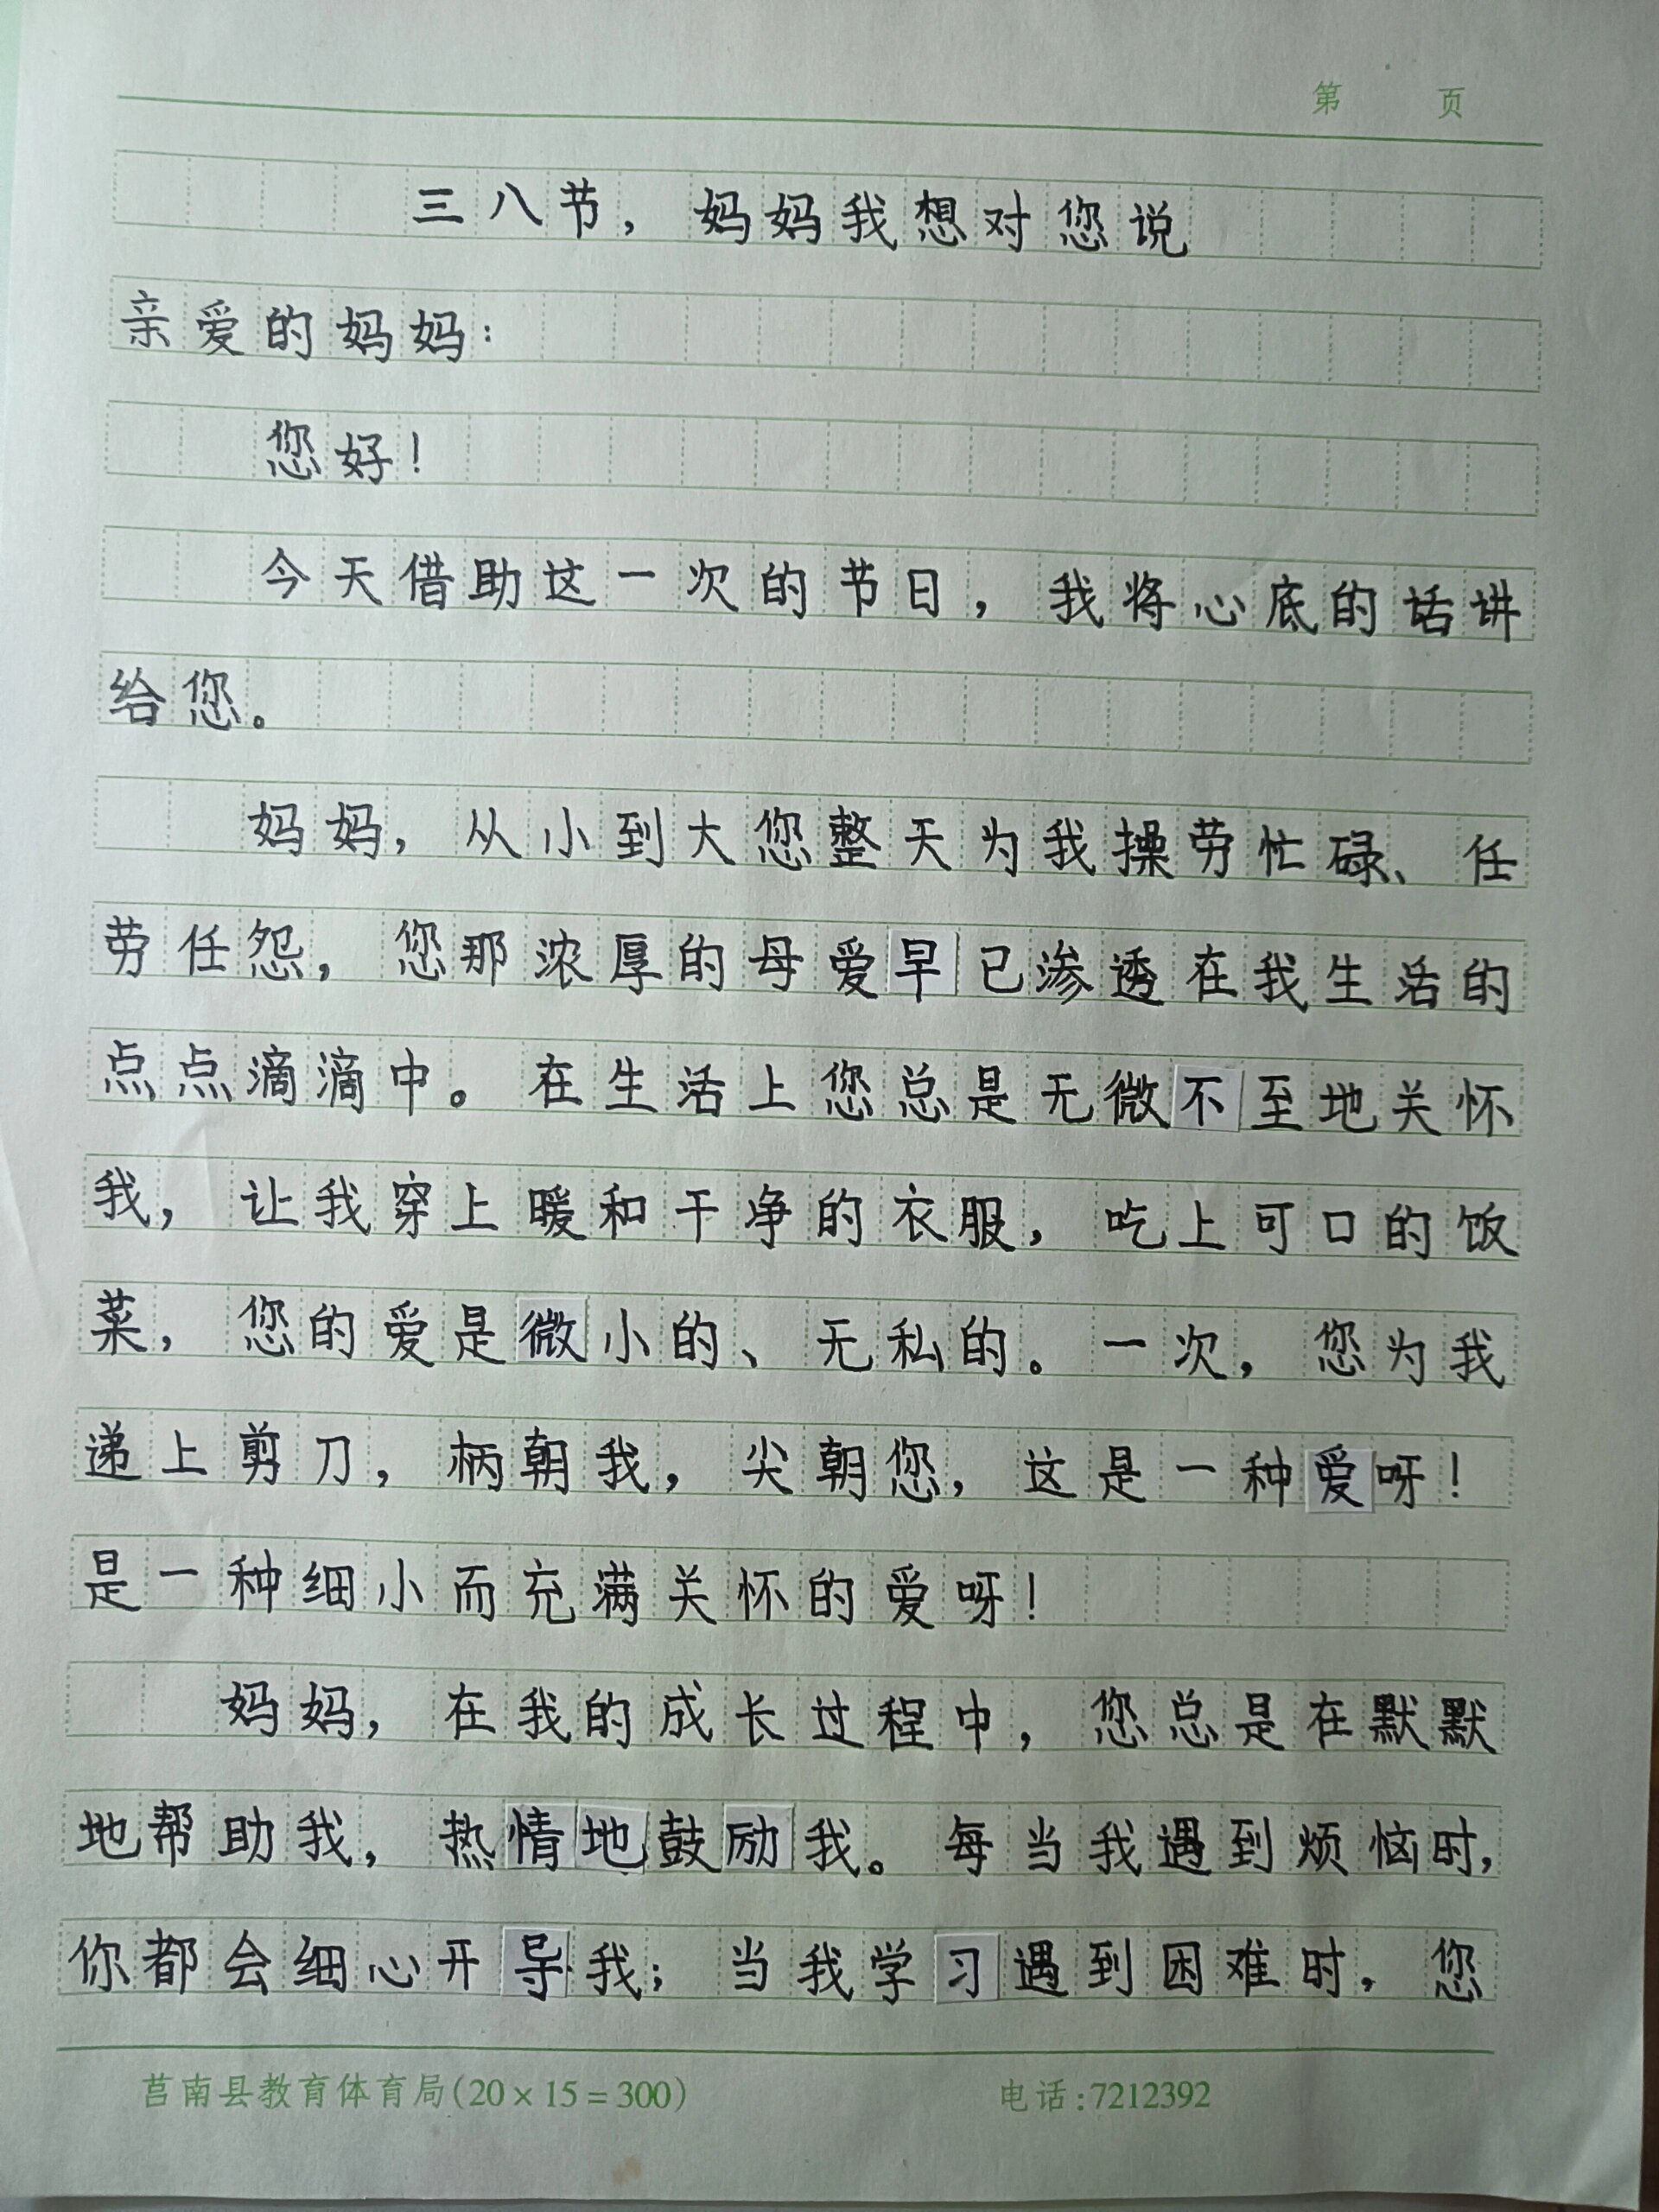 第 页
三八节，妈妈我想对您说
亲爱的妈妈：
您好！
今天借助这一次的节日，我将心底的话讲
给您。
妈妈，从小到大您整天为我操劳忙碌、任
劳任怨，您那浓厚的母爱早已渗透在我生活的
点点滴滴中。在生活上您总是无微不至地关怀
我，让我穿上暖和干净的衣服，吃上可口的饭
菜，您的爱是微小的、无私的。一次，您为我
递上剪刀，柄朝我，尖朝您，这是一种爱呀！
是一种细小而充满关怀的爱呀！
妈妈，在我的成长过程中，您总是在默默
地帮助我，热情地鼓励我。每当我遇到烦恼时，
你都会细心开导我；当我学习遇到困难时，您
莒南县教育体育局(20×15=300) 电话:7212392